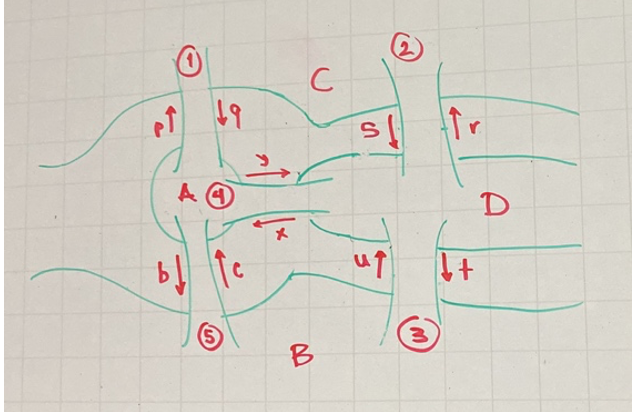 ① ②
C
p↑ ↓q S↓ ↑r
y →
A ④ D
← x
b↓ ↑c u↑ ↓t
⑤ ③
B